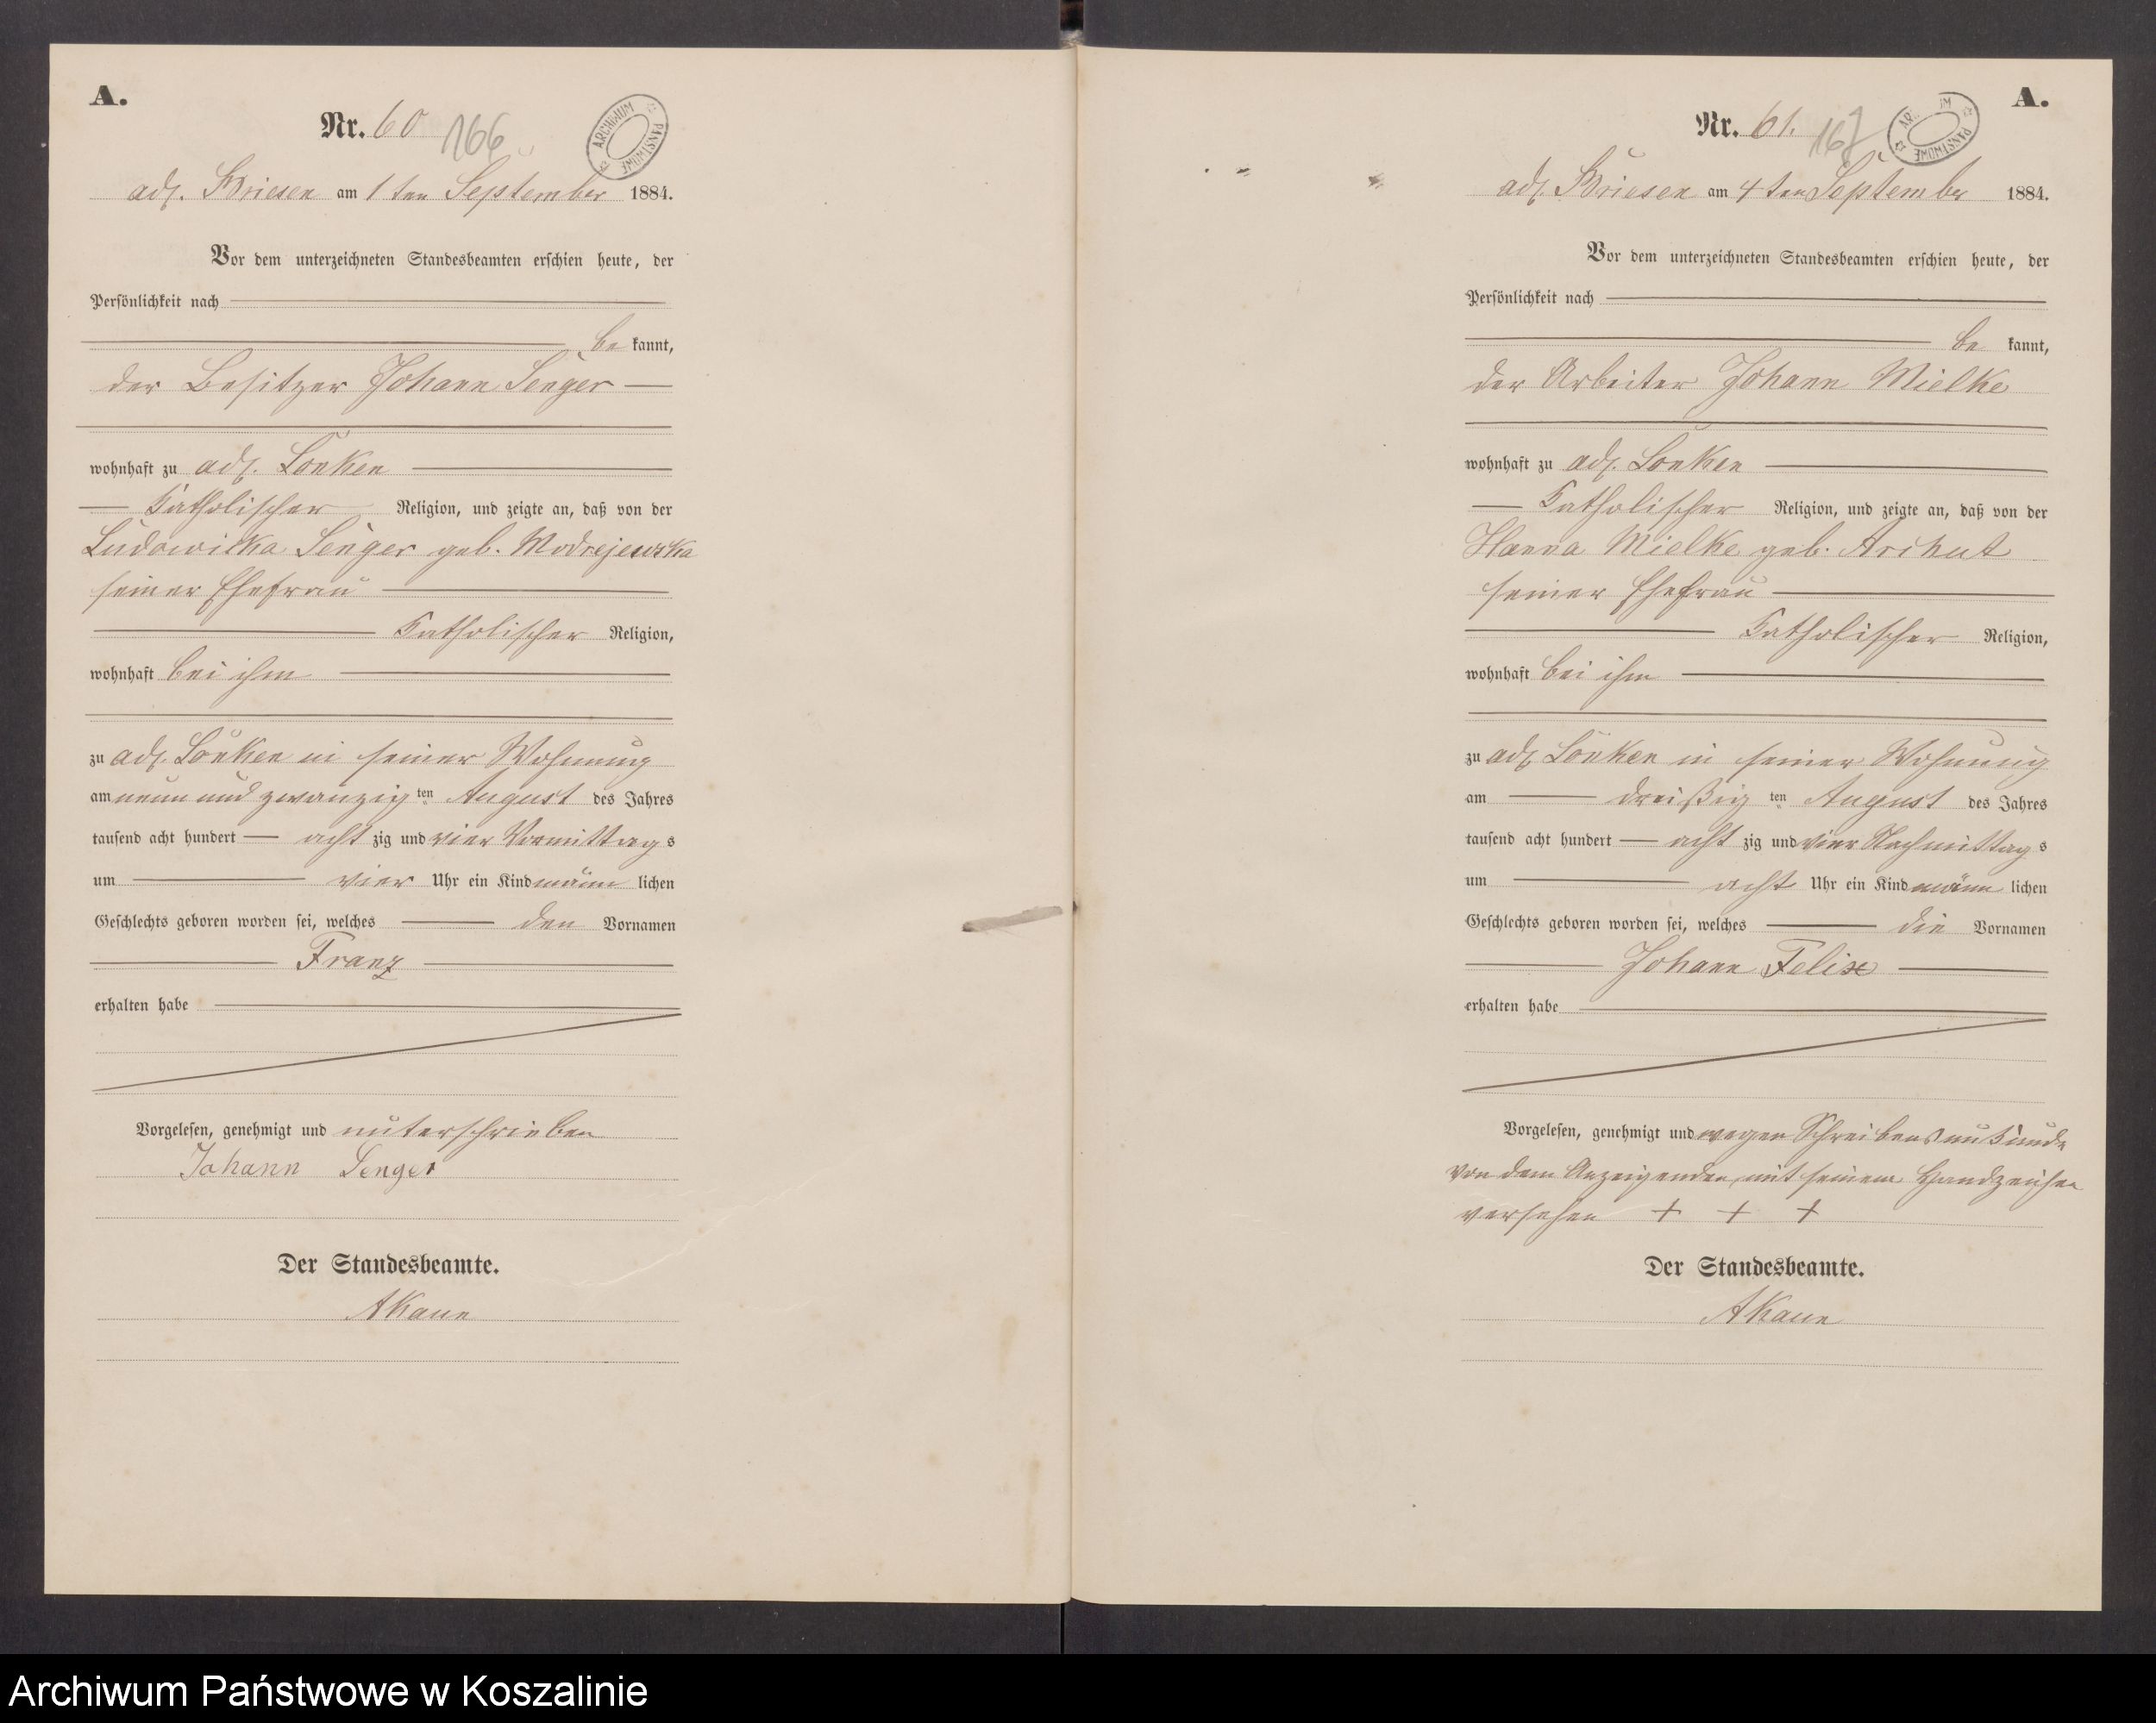 A.
Nr. 60
166
ARCHIWUM PAŃSTWOWE
adl. Briesen am 1ten September 1884.
Vor dem unterzeichneten Standesbeamten erschien heute, der
Persönlichkeit nach
be kannt,
der Besitzer Johann Senger
wohnhaft zu adl. Lonken
katholischer Religion, und zeigte an, daß von der
Ludowicka Senger geb. Modrejewska
seiner Ehefrau
katholischer Religion,
wohnhaft bei ihm
zu adl. Lonken in seiner Wohnung
am neun und zwanzig ten August des Jahres
tausend acht hundert acht zig und vier Vormittag s
um vier Uhr ein Kind männ lichen
Geschlechts geboren worden sei, welches den Vornamen
Franz
erhalten habe
Vorgelesen, genehmigt und unterschrieben
Johann Senger
Der Standesbeamte.
A.
Nr. 61.
167
adl. Briesen am 4ten September 1884.
Vor dem unterzeichneten Standesbeamten erschien heute, der
Persönlichkeit nach
be kannt,
der Arbeiter Johann Mielke
wohnhaft zu adl. Lonken
katholischer Religion, und zeigte an, daß von der
Hanna Mielke geb.
seiner Ehefrau
katholischer Religion,
wohnhaft bei ihm
zu adl. Lonken in seiner Wohnung
am dreißig ten August des Jahres
tausend acht hundert acht zig und vier Nachmittag s
um acht Uhr ein Kind männ lichen
Geschlechts geboren worden sei, welches die Vornamen
Johann Felix
erhalten habe
Vorgelesen, genehmigt und wegen Schreibensunkunde
von dem Anzeigenden mit seinem Handzeichen
versehen + + +
Der Standesbeamte.
Archiwum Państwowe w Koszalinie